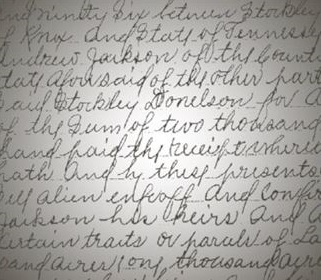 and ninety six between Stockley
of Knox And State of Tennessee
Andrew Jackson of the County
State aforesaid of the other part
said Stockley Donelson for
of the Sum of two thousand
hand paid the receipt where
hath And by these presents
Sell alien enfeoff and confir
Jackson his heirs And
Certain tracts or parcels of La
sand acres (one thousand acre